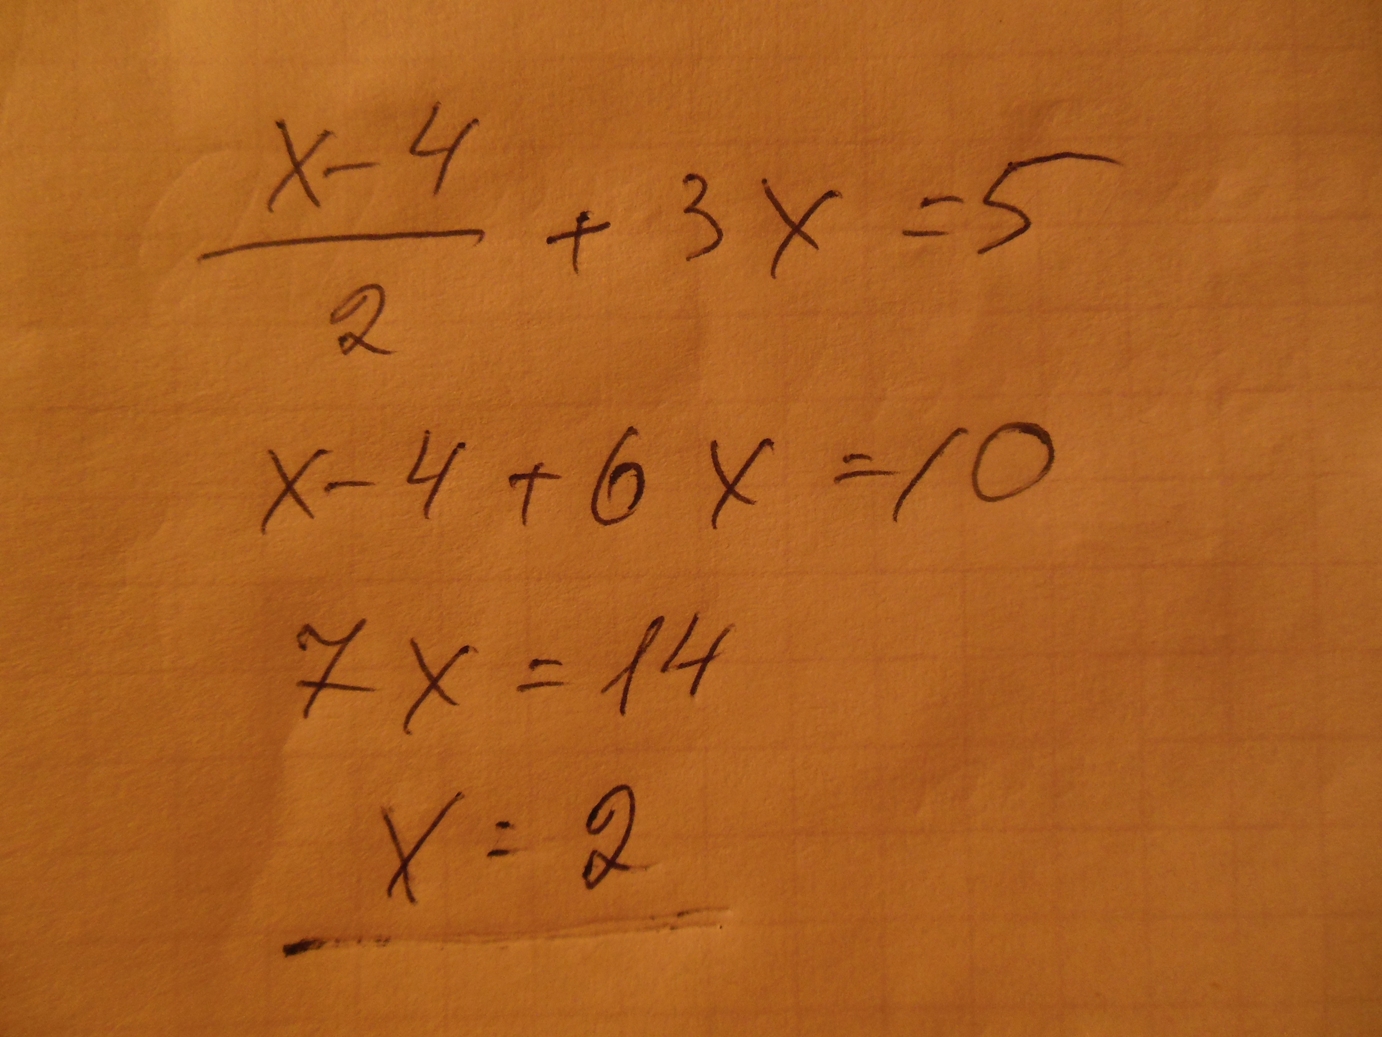 x-4
—— + 3x = 5
2
x-4+6x=10
7x=14
x=2